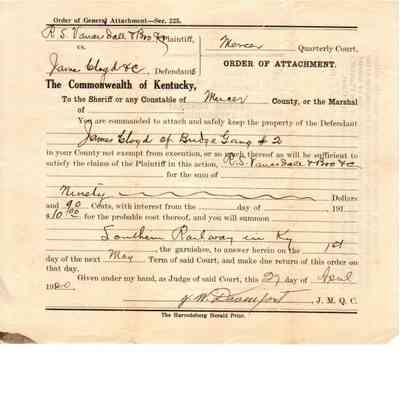 Order of General Attachment—Sec. 225.
R. S. Vanarsdall & Bro &c Plaintiff,
vs.
James Cloyd &c, Defendants
Mercer Quarterly Court,
ORDER OF ATTACHMENT.
The Commonwealth of Kentucky,
To the Sheriff or any Constable of Mercer County, or the Marshal
of
You are commanded to attach and safely keep the property of the Defendant
James Cloyd of Bridge Gang # 2
in your County not exempt from execution, or so much thereof as will be sufficient to
satisfy the claims of the Plaintiff in this action, R. S. Vanarsdall & Bro &c
for the sum of
Ninety Dollars
and 90 Cents, with interest from the day of 191
$10.00 for the probable cost thereof, and you will summon
Southern Railway in Ky
the garnishee, to answer herein on the 1st
day of the next May Term of said Court, and make due return of this order on
that day.
Given under my hand, as Judge of said Court, this 27 day of April
1920.
J. M. Q. C.
The Harrodsburg Herald Print.